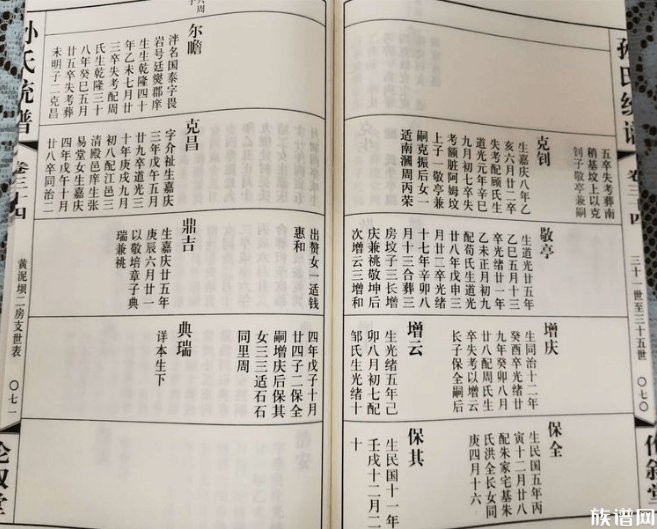 孙氏统谱
卷三十四
三十一世至三十五世
〇七〇
五卒失考葬南
稍基坟上以克
钊子敬亭兼嗣
克钊
生嘉庆八年乙
亥六月廿二卒
失考配顾氏生
道光元年辛巳
九月初七卒失
考额脏阿姆坟
上子一敬亭兼
嗣克振后女一
适南濄周丙荣
敬亭
生道光廿五年
乙巳五月十三
卒光绪廿一年
乙未正月初九
配荀氏生道光
廿八年戊申三
月廿二卒光绪
十七年辛卯八
月十三合葬三
房坟子三长增
庆兼祧敬坤后
次增云三增和
增庆
生同治十二年
癸酉卒光绪廿
九年癸卯八月
廿八配周氏生
卒失考以增云
长子保全嗣后
增云
生光绪五年己
卯八月初七配
邹氏生光绪十
保全
生民国五年丙
寅十二月廿八
配朱家宅基朱
氏洪全长女同
庚四月十六
保其
生民国十一年
壬戌十二月二
十
四年戊子十月
廿四子二保全
嗣增庆后保其
女三三适石石
同里周
尔瞻
泮名国泰字畏
岩号廷燮郡庠
生生乾隆四十
年乙未七月廿
三卒失考配周
氏生乾隆三十
八年癸巳五月
廿五卒失考葬
未明子二克昌
出赘女一适钱
惠和
克昌
字介祉生嘉庆
三年戊午五月
廿九卒道光三
十年庚戌九月
初八配江邑三
清殿邑庠生张
易堂女生嘉庆
四年戊午十月
廿八卒同治二
鼎吉
生嘉庆廿五年
庚辰六月廿一
以敬培章子典
瑞兼祧
典瑞
详本生下
孙氏统谱
卷三十四
黄泥坝二房支世表
〇七一
伦叙堂
族谱网